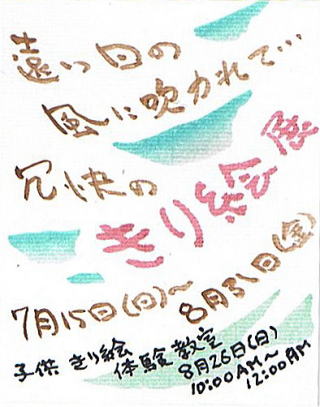 遠い日の
風に吹かれて…
冗快の
きり絵展
7月15日(日)～
8月31日(金)
子供 きり絵 体験 教室
8月26日(日)
10:00AM～
12:00AM